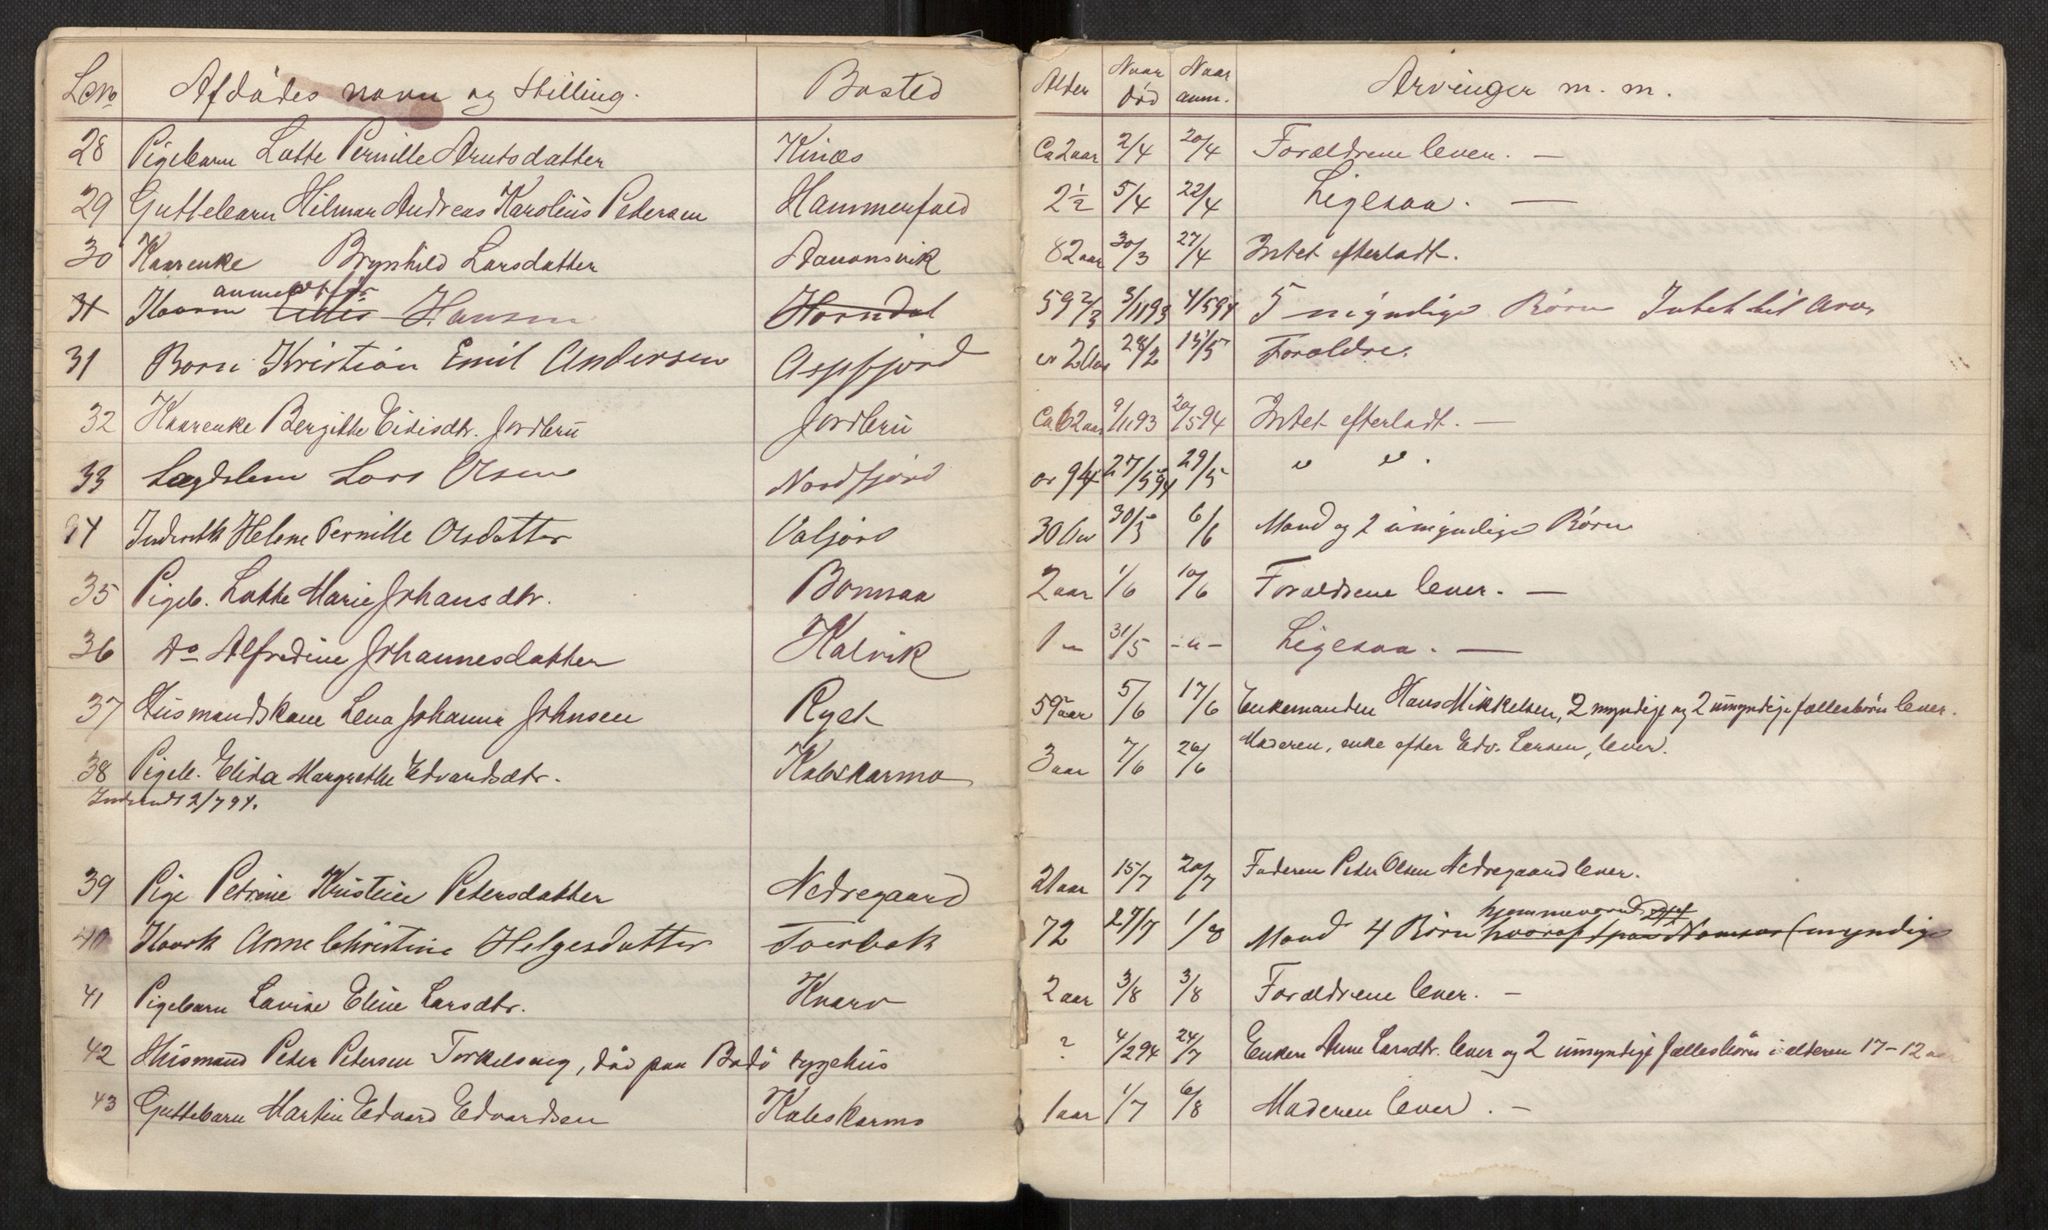 Lno Afdödes navn og Stilling. Bosted Alder Naar död Naar anm. Arvinger m. m.
28 Pigebarn Lotte Pernille Arntsdatter Kinæs Ca 2 aar 2/4 20/4 Forældrene lever. —
29 Guttebarn Hilmar Andreas Karolius Petersen Hammerfald 2 1/2 5/4 22/4 Ligesaa. —
30 Kaarenke Brynhild Larsdatter 82 aar 30/3 27/4 Intet efterladt.
anmeldt før
31 Hansen Horndal 59 2/3 3/11 93 4/5 94 5 myndige Børn Intet til Arv
31 Barn Kristian Emil Andersen Aspfjord 2 Aar 28/2 Forældre.
32 Kaarenke Bergitte Eidisdtr. Jordbru Jordbru Ca 62 aar 9/11 93 20/5 94 Intet efterladt. —
33 Lægdslem Lars Olsen Nordfjord 94 27/5 94 29/5 " " .
34 Inderstk Helene Pernille Olsdatter Valjord 30 Aar 30/5 6/6 Mand og 2 umyndige Børn
35 Pigeb. Lotte Marie Johansdtr. Bonnaa 2 aar 1/6 10/6 Forældrene lever. —
36 Do Alfredine Johannesdatter Kalvik 1 " 31/5 - " - Ligesaa. —
37 Husmandskone Lena Johanna Johnsen Ryet 59 aar 5/6 17/6 Enkemanden Hans Mikkelsen, 2 myndige og 2 umyndige fællesbörn lever.
38 Pigeb. Elida Margrethe Edvardsdtr. Kobskarmo 3 aar 7/6 26/6 Moderen, enke efter Edv. Larsen, lever.
Indsendt 2/7 94.
39 Pige Petrine Kristine Petersdatter Nedregaard 21 aar 15/7 20/7 Faderen Peter Olsen Nedregaard lever.
hjemmeværende
40 Kaark Anne Christine Helgesdatter Tverbak 72 27/7 1/8 Mand 4 Børn hvoraf myndige
41 Pigebarn Lovise Eline Larsdtr. Kvarv 2 aar 3/8 3/8 Forældrene lever. —
42 Husmand Peter Petersen Torkelseng, död paa Bodö sygehus ? 4/2 94 24/7 Enken Anne Larsdtr. lever og 2 umyndige fællesbörn i alderen 17-12 aar
43 Guttebarn Martin Edvard Edvardsen Kobskarmo 1 aar 1/7 6/8 Moderen lever. —